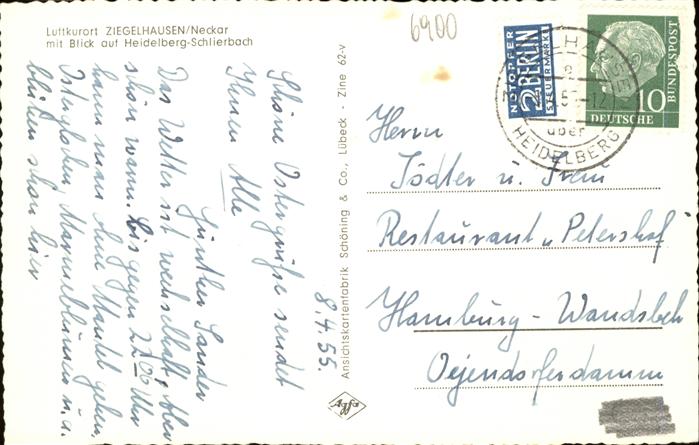 Luftkurort ZIEGELHAUSEN/Neckar
mit Blick auf Heidelberg-Schlierbach
8.4.55.
Schöne Ostergrüße sendet
Ihnen Alle
Günther Sander
Das Wetter ist wechselhaft, aber
schön warm. Bis gegen 22.00 Uhr
kann man ohne Mantel gehen
Osterglocken, u.a.
blühen schon hier
Ansichtskartenfabrik Schöning & Co., Lübeck - Zine 62-v
Agfa
6900
NOTOPFER
2 BERLIN
STEUERMARKE
DEUTSCHE
BUNDESPOST
10
über
HEIDELBERG
Herrn
Tödter u. Frau
Restaurant „Petershof"
Hamburg-Wandsbek
Oejendorferdamm